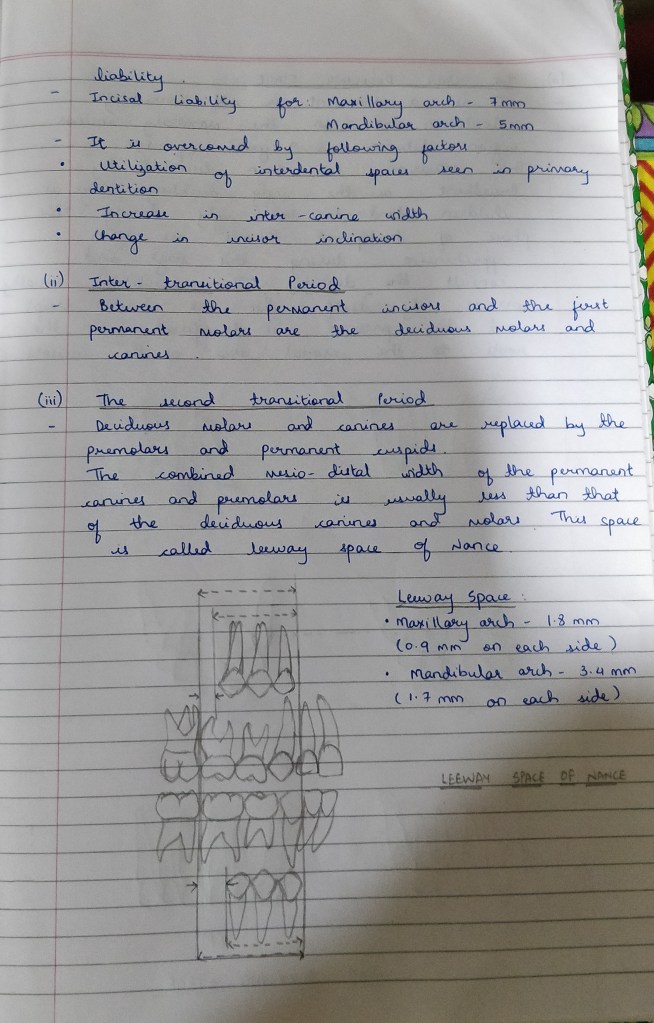 liability.
- Incisal liability for: Maxillary arch - 7mm
Mandibular arch - 5mm
- It is overcomed by following factors
• Utilization of interdental spaces seen in primary
dentition
• Increase in inter-canine width
• Change in incisor inclination
(ii) Inter-transitional Period
- Between the permanent incisors and the first
permanent molars are the deciduous molars and
canines.
(iii) The second transitional Period
- Deciduous molars and canines are replaced by the
premolars and permanent cuspids.
The combined mesio-distal width of the permanent
canines and premolars is usually less than that
of the deciduous canines and molars. This space
is called leeway space of Nance.
Leeway Space:
• Maxillary arch - 1.8 mm
(0.9 mm on each side)
• Mandibular arch - 3.4 mm
(1.7 mm on each side)
LEEWAY SPACE OF NANCE